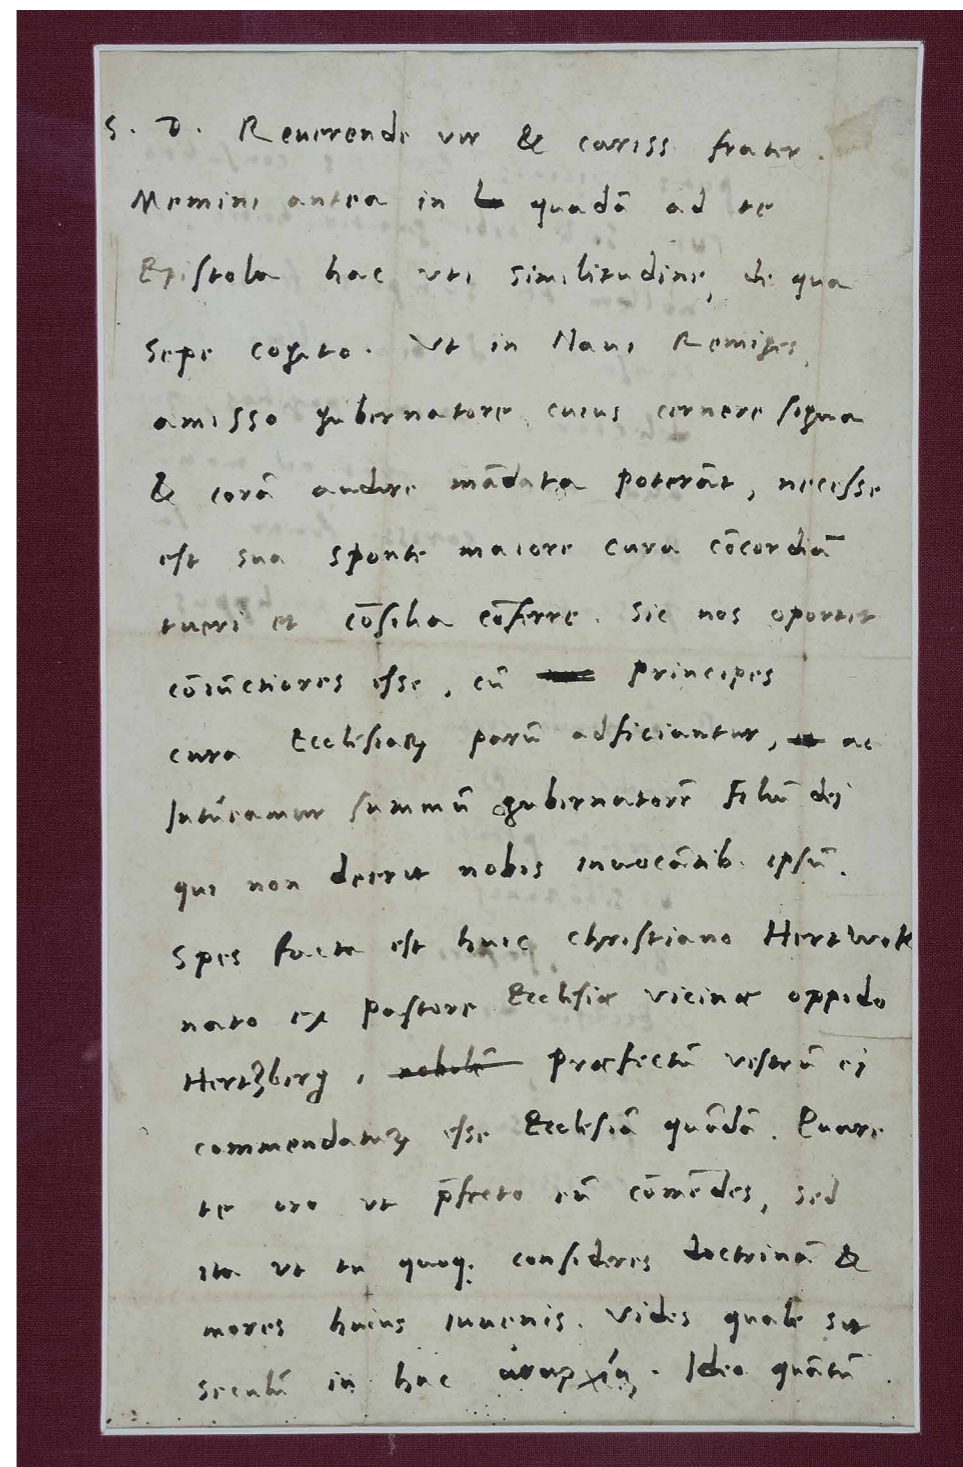 S. D. Reuerende vir & cariss. frater.
Memini antea in quadā ad te
Epistola hac vti similitudine, de qua
sepe cogito. Vt in Naui Remiges,
amisso gubernatore, cuius cernere signa
& corā audire mādata poterāt, necesse
est sua sponte maiore cura cōcordiā
tueri et cōsilia cōferre. Sic nos oportet
cōiūctiores esse, cū principes
cura Ecclesiaꝝ parū adficiantur, ac
Intūeamur summū gubernatorē Filiū dei
qui non deerit nobis inuocātib. ipsū.
Spes facta est huic Christiano Hertwok
nato ex pastore Ecclesiæ vicinæ oppido
Hertzberg, præfectū vestrū ei
commendatuꝝ esse Ecclesiā quādā. Quare
te oro vt p̄fecto eū cōmēdes, sed
ita vt tu quoq; consideres doctrinā &
mores huius iuuenis. Vides quale sit
seculū in hac ἀναρχίᾳ. Ideo quātū